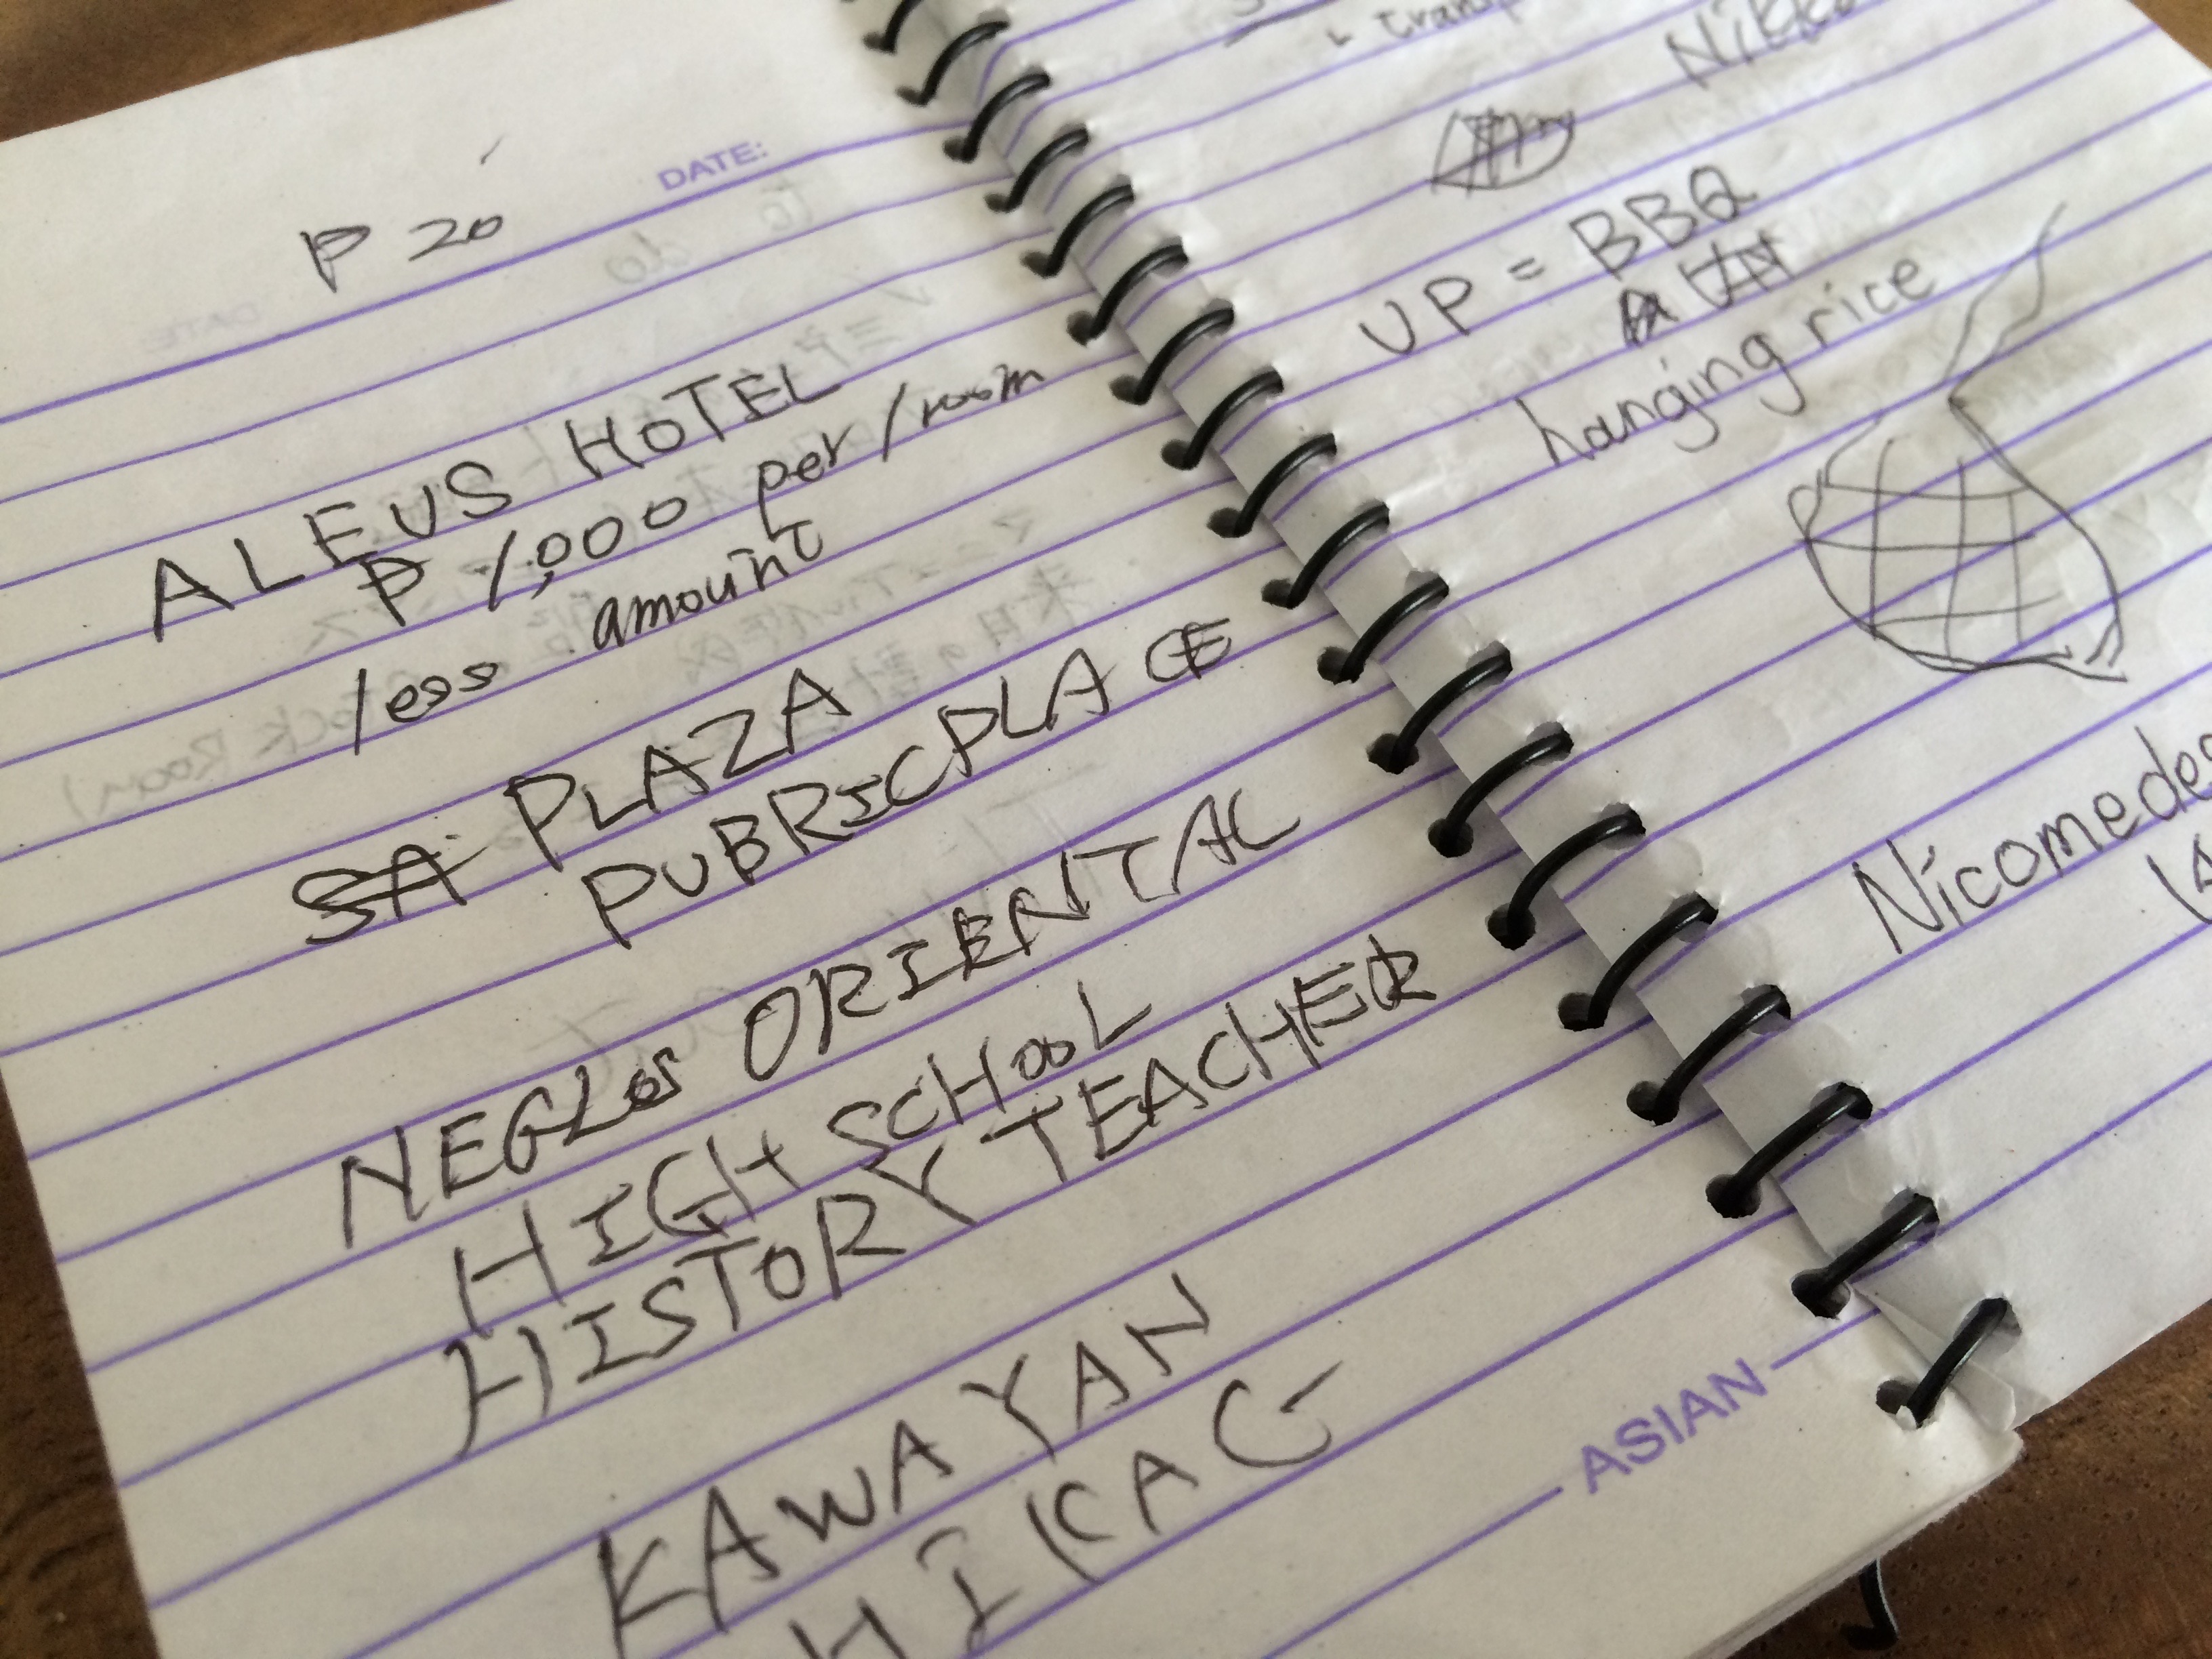 DATE:
₱ 20
ALEUS HOTEL
₱ 1,000 per/room
less amount
SA PLAZA
PUBRICPLACE
NEGLOS ORIENTAL
HIGH SCHOOL
HISTORY TEACHER
KAWAYAN
HIKAG
ASIAN
Nikko
UP = BBQ
hanging rice
Nicomedes